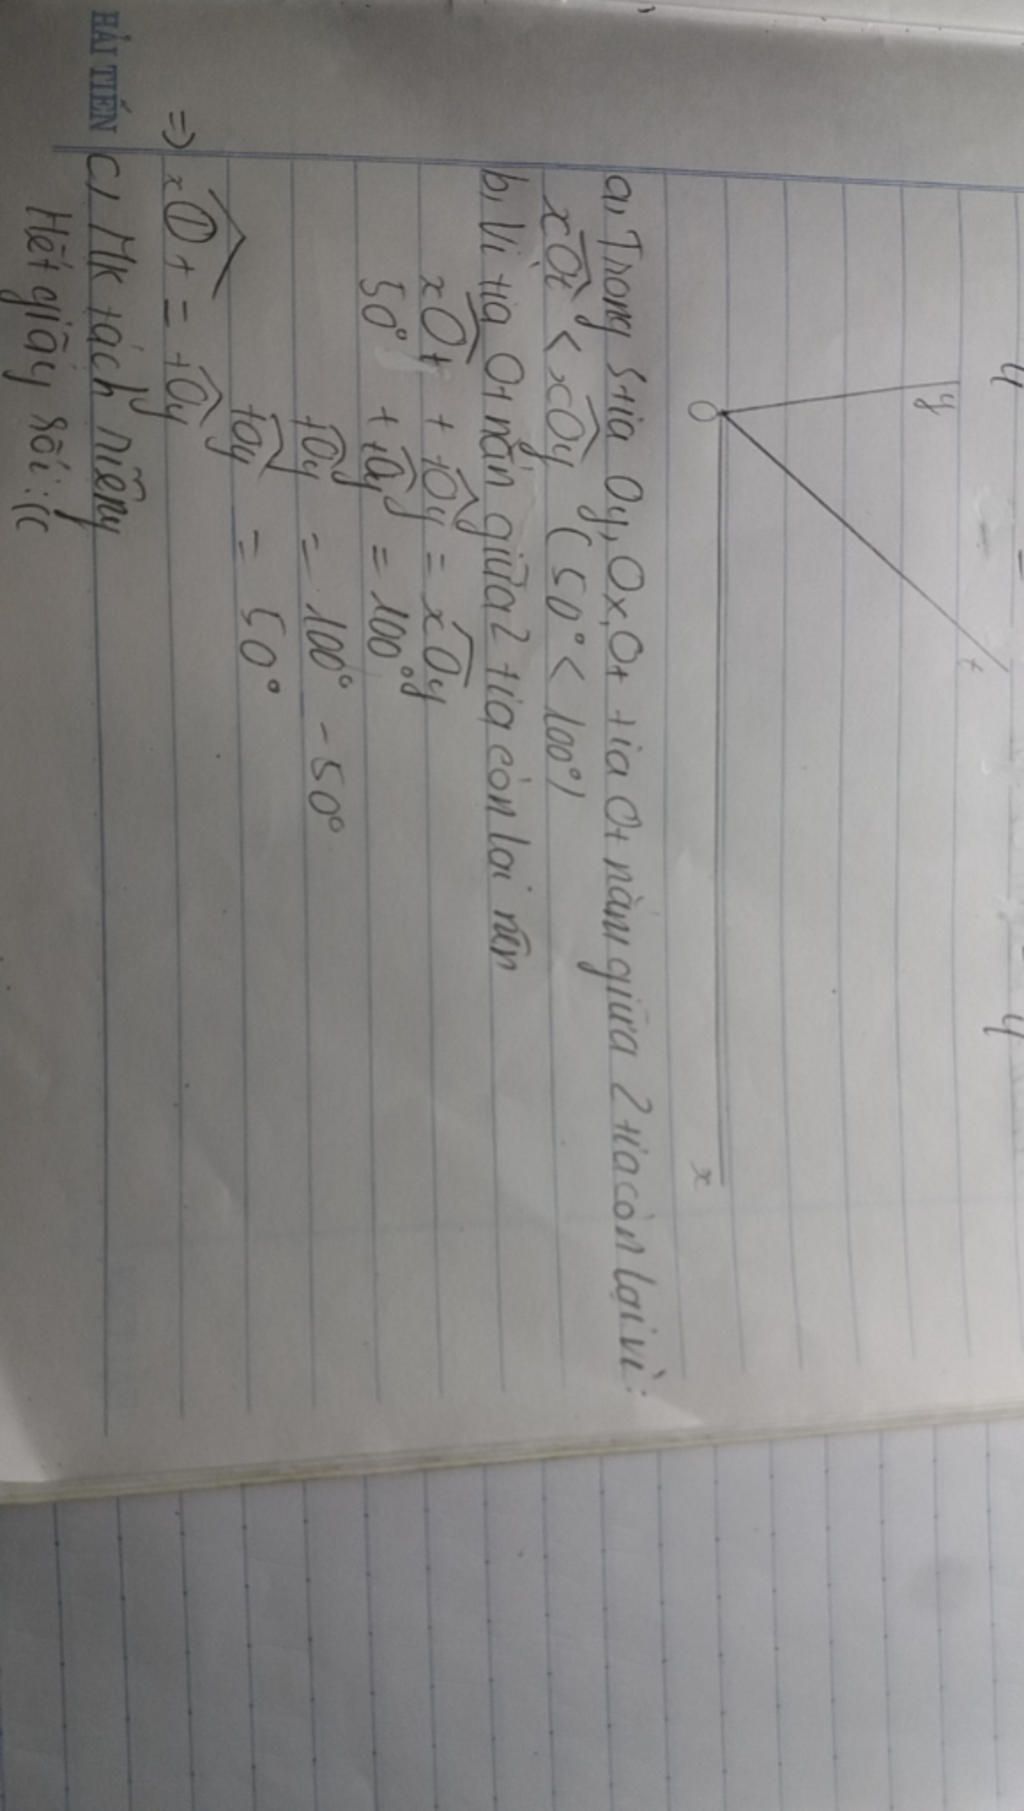 y
t
O
x
a, Trong 3 tia Oy, Ox, Ot tia Ot nằm giữa 2 tia còn lại vì:
xOt < xOy (50° < 100°)
b, Vì tia Ot nằn giữa 2 tia còn lại nên
xOt + tOy = xOy
50° + tOy = 100°
tOy = 100° - 50°
tOy = 50°
=> xOt = tOy
HẢI TIẾN
c, Mk tách riêng
Hết giấy rồi :((